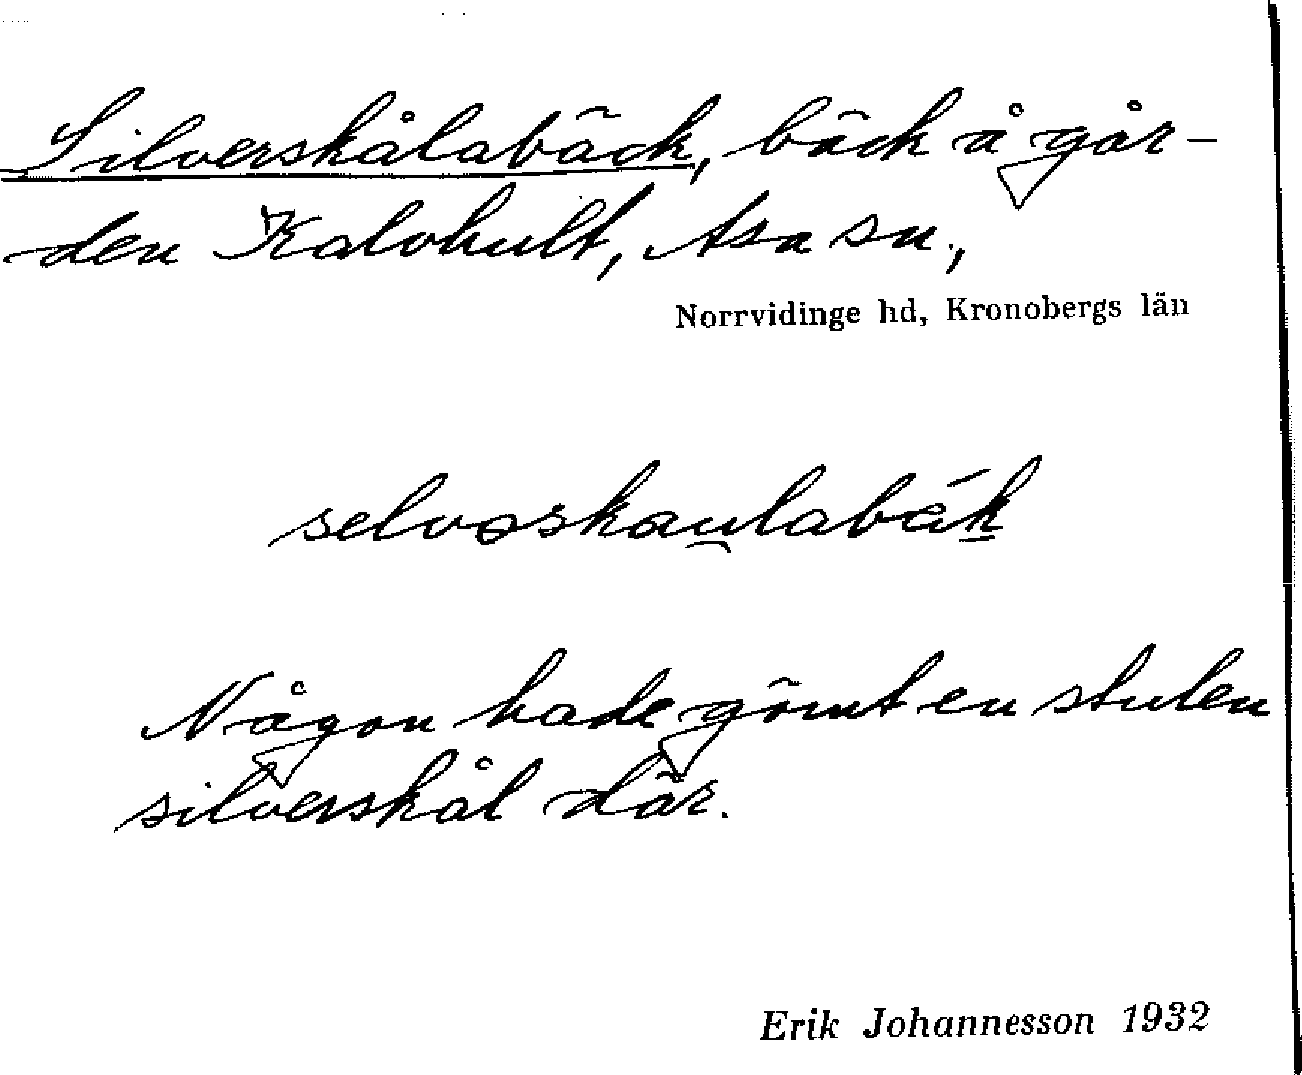 Silverskålabäck, bäck å går-
den Kalvhult, Asa sn.,
Norrvidinge hd, Kronobergs län
selvəskau̯labäk
Någon hade gömt en stulen
silverskål där.
Erik Johannesson 1932